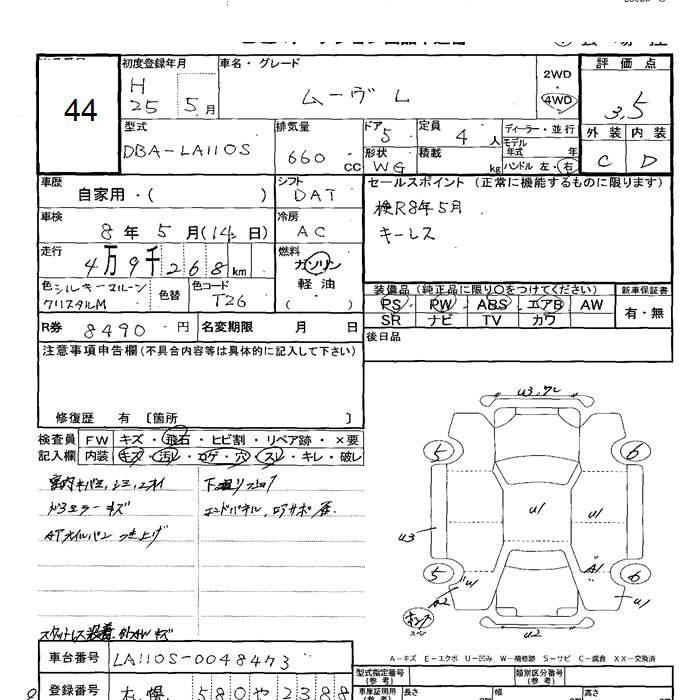 44
初度登録年月
H
25 5 月
車名・グレード
ムーヴ L
2WD
4WD
評価点
3.5
外装 内装
C D
型式
DBA-LA110S
排気量
660 cc
ドア 5
形状 WG
定員 4 人
積載 kg
ディーラー・並行
モデル年式 年
ハンドル 左・右
車歴
自家用・( )
シフト
DAT
セールスポイント (正常に機能するものに限ります)
検R8年5月
キーレス
車検
8 年 5 月 (14 日)
冷房
AC
走行
4万9千268 km
燃料
ガソリン
軽油
( )
色 シルキーマルーン
クリスタルM
色替
色コード
T26
装備品 (純正品に限り○をつけてください)
PS PW ABS エアB AW
SR ナビ TV カワ
新車保証書
有・無
R券 8490 円 名変期限 月 日
後日品
注意事項申告欄 (不具合内容等は具体的に記入して下さい)
修復歴 有 〔箇所 〕
検査員 FW キズ・飛石・ヒビ割・リペア跡・×要
記入欄 内装 キズ・汚レ・コゲ・穴・スレ・キレ・破レ
ドアミラー キズ
ATオイルパン つき上げ
スタットレス装着
車台番号 LA110S-0048473
登録番号 札幌 580 や 2388
U3
5 6
U1 U1
U3
A1
5 6
U1
A2
U1
U2
A-キズ E-エクボ U-凹み W-補修跡 S-サビ C-腐食 XX-交換済
型式指定番号
(参考)
類別区分番号
(参考)
車庫証明用
(参考)
長さ cm
幅 cm
高さ cm